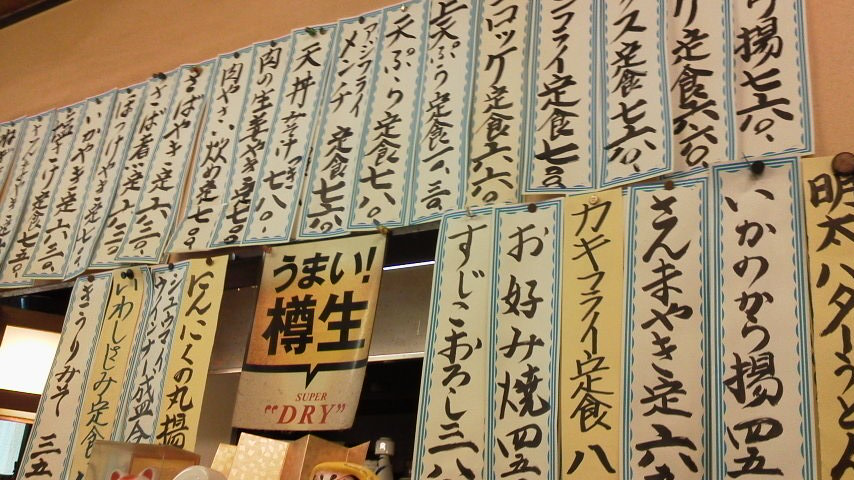 揚七六〇、
定食六六〇、
ス定食七〇、
フライ定食七五〇
コロッケ定食六六〇、
上天ぷら定食一、一三〇、
天ぷら定食七八〇、
アジフライ
メンチ 定食七六〇、
天丼 みそ汁つき、
肉の生姜やき定七五〇
肉やさい炒め定七〇〇
さばやき定六三〇、
さば煮定六三〇、
ほっけやき定
いかやき定
塩さけ定六三〇、
明太バターうどん
いかのから揚四五
さんまやき定六五
カキフライ定食八
お好み焼四五
すじこおろし三八
うまい!
樽生
SUPER
"DRY"
にんにくの丸揚
シュウマイ、
ウインナー盛合
いわししとみ定食
きうりみそ三五